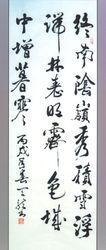 終南陰嶺秀積雪浮
端林表明霽色城
中增暮寒 丙戌